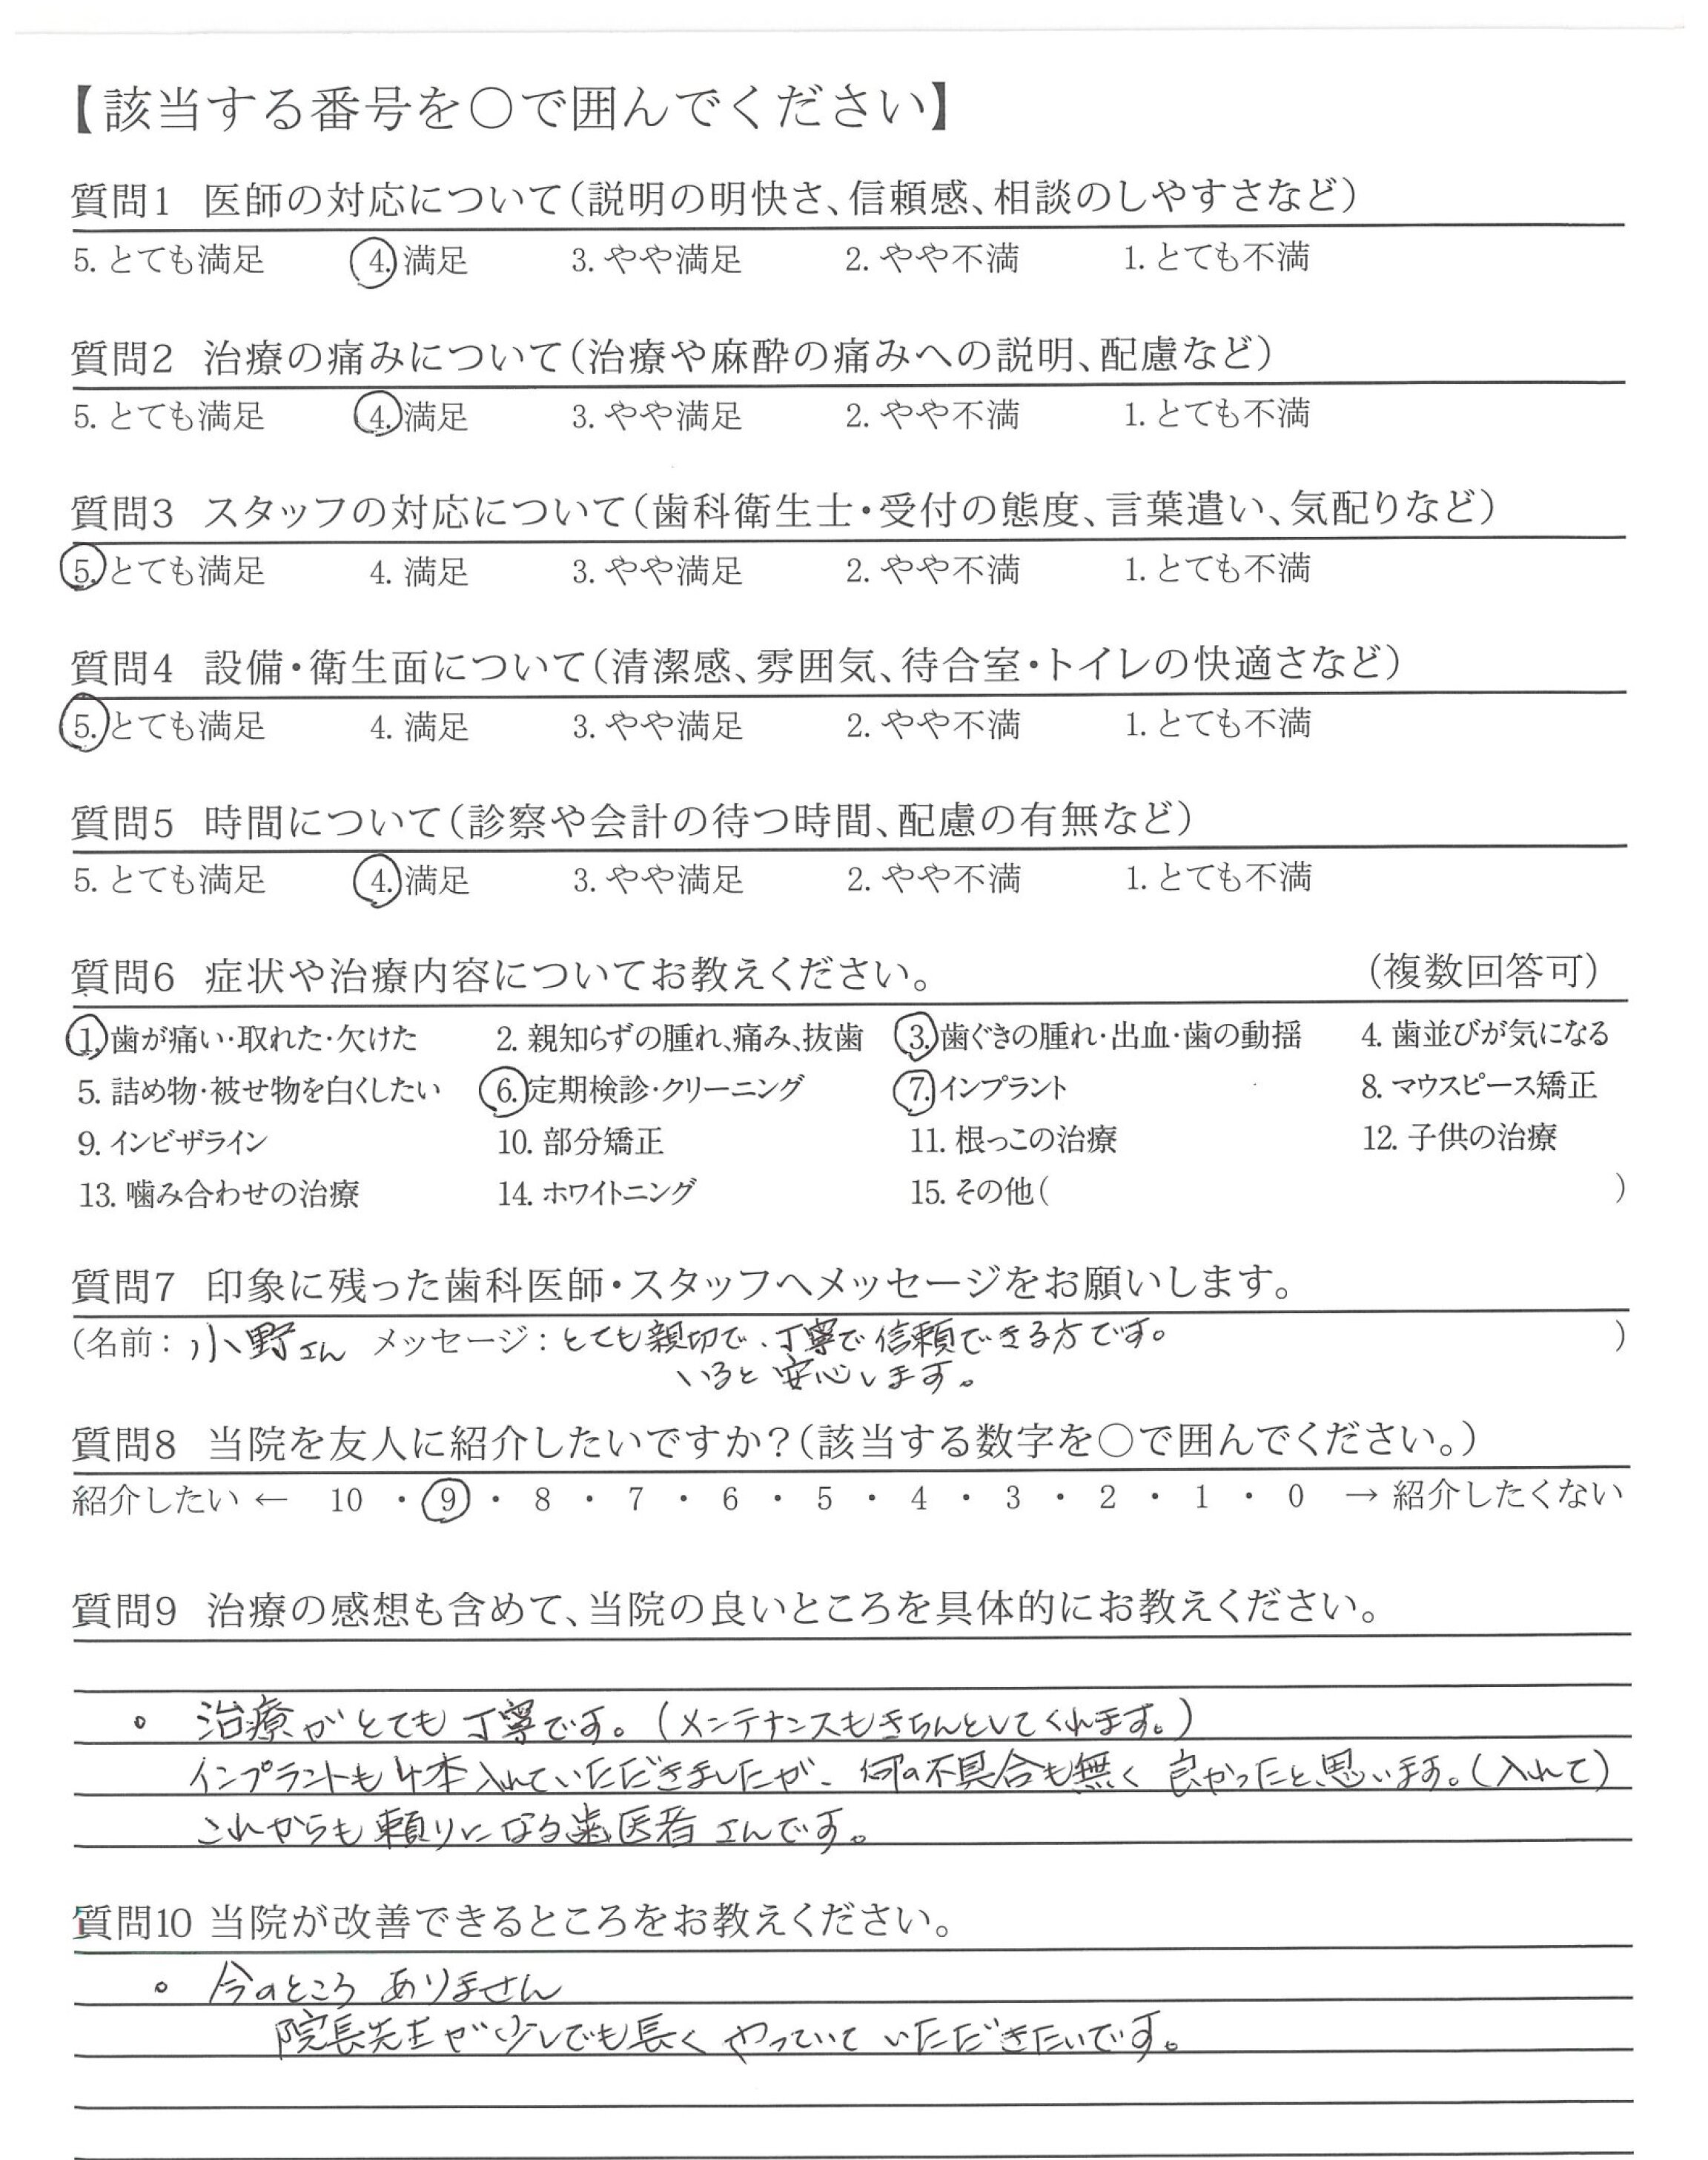 【該当する番号を〇で囲んでください】
質問1 医師の対応について(説明の明快さ、信頼感、相談のしやすさなど)
5. とても満足 4. 満足 3. やや満足 2. やや不満 1. とても不満
質問2 治療の痛みについて(治療や麻酔の痛みへの説明、配慮など)
5. とても満足 4. 満足 3. やや満足 2. やや不満 1. とても不満
質問3 スタッフの対応について(歯科衛生士・受付の態度、言葉遣い、気配りなど)
5. とても満足 4. 満足 3. やや満足 2. やや不満 1. とても不満
質問4 設備・衛生面について(清潔感、雰囲気、待合室・トイレの快適さなど)
5. とても満足 4. 満足 3. やや満足 2. やや不満 1. とても不満
質問5 時間について(診察や会計の待つ時間、配慮の有無など)
5. とても満足 4. 満足 3. やや満足 2. やや不満 1. とても不満
質問6 症状や治療内容についてお教えください。 (複数回答可)
1. 歯が痛い・取れた・欠けた 2. 親知らずの腫れ、痛み、抜歯 3. 歯ぐきの腫れ・出血・歯の動揺 4. 歯並びが気になる
5. 詰め物・被せ物を白くしたい 6. 定期検診・クリーニング 7. インプラント 8. マウスピース矯正
9. インビザライン 10. 部分矯正 11. 根っこの治療 12. 子供の治療
13. 噛み合わせの治療 14. ホワイトニング 15. その他( )
質問7 印象に残った歯科医師・スタッフへメッセージをお願いします。
(名前: 小野さん メッセージ: とても親切で、丁寧で信頼できる方です。 )
いると安心します。
質問8 当院を友人に紹介したいですか?(該当する数字を〇で囲んでください。)
紹介したい ← 10 ・ 9 ・ 8 ・ 7 ・ 6 ・ 5 ・ 4 ・ 3 ・ 2 ・ 1 ・ 0 → 紹介したくない
質問9 治療の感想も含めて、当院の良いところを具体的にお教えください。
。治療がとても丁寧です。(メンテナンスもきちんとしてくれます。)
インプラントも4本入れていただきましたが、何の不具合も無く良かったと思います。(入れて)
これからも頼りになる歯医者さんです。
質問10 当院が改善できるところをお教えください。
。今のところ ありません
院長先生が少しでも長く やっていて いただきたいです。